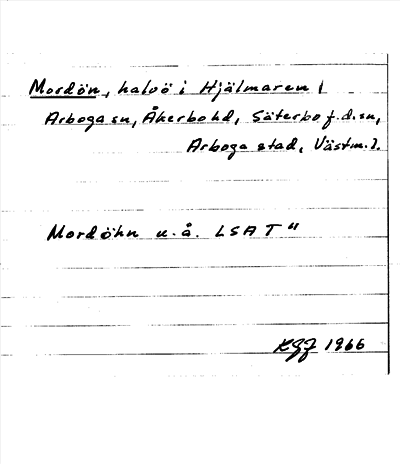 Mordön, halvö i Hjälmaren (
Arboga sn, Åkerbo hd, Säterbo f.d. sn,
Arboga stad, Västm.).
Mordöhn u.å. LSA T"
1966